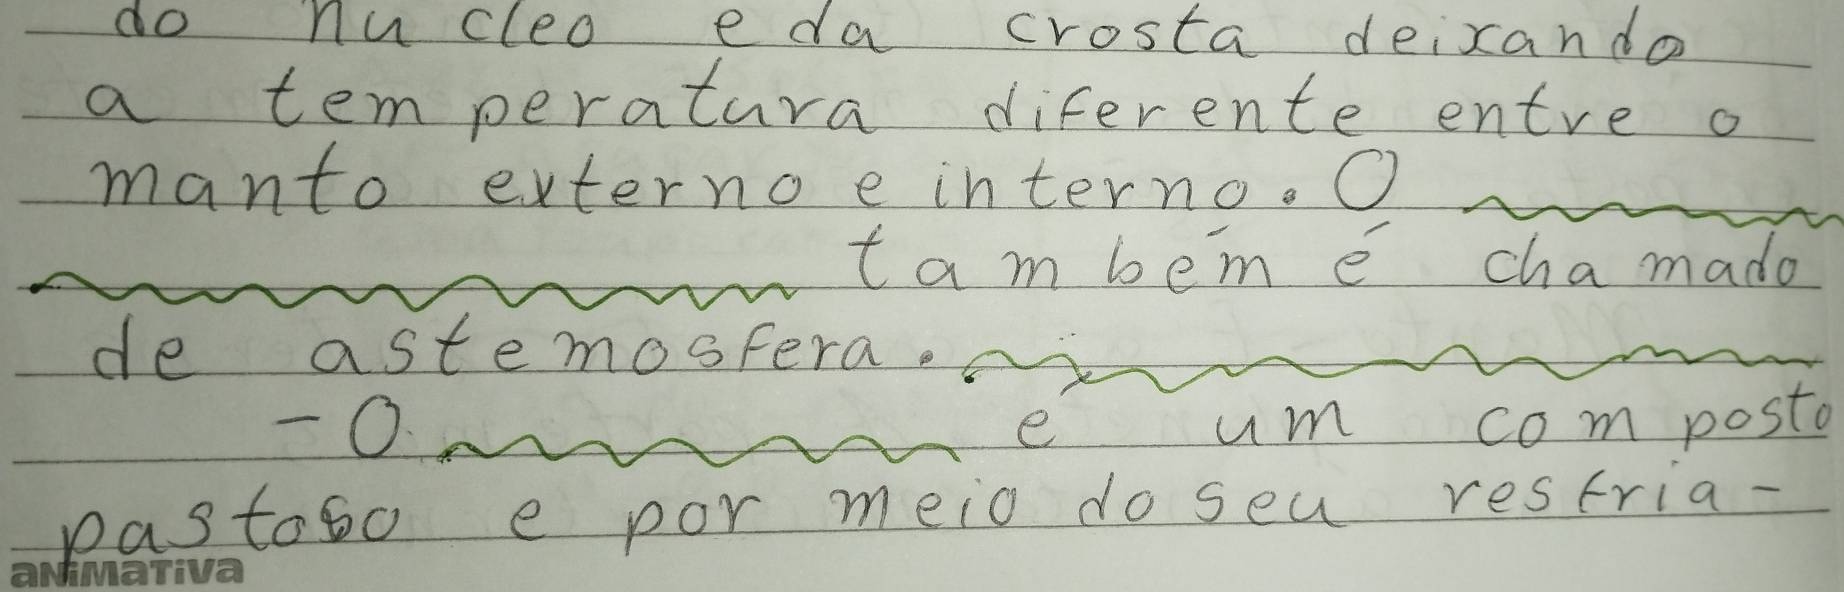 do nucleo e da crosta deixando
a temperatura diferente entre o
manto externo e interno. O
também é chamado
de astemosfera.
- O é um composto
pastoso e por meio do seu resfria-
aNiMaTiVa